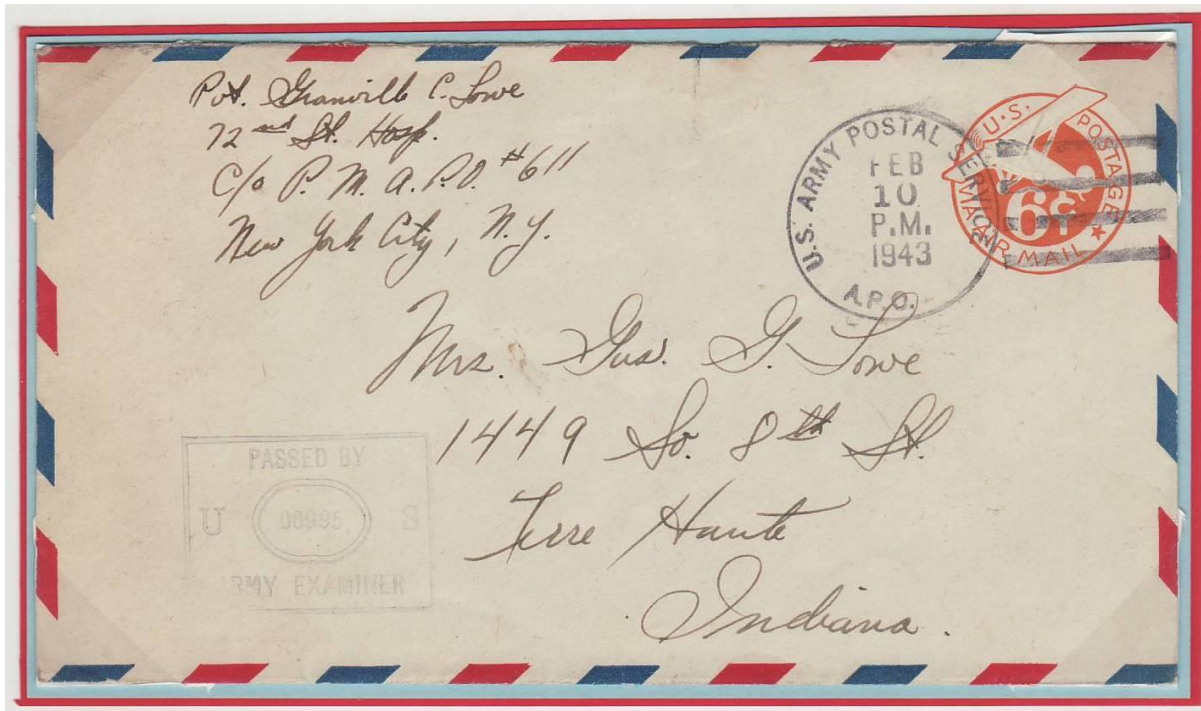 Pvt. Granville C. Lowe
72nd St. Hosp.
C/o P. M. A.P.O. #611
New York City, N.Y.
U.S. ARMY POSTAL SERVICE
FEB
10
P.M.
1943
A.P.O.
U.S. POSTAGE
6¢
VIA AIR MAIL
Mrs. Gus. G. Lowe
1449 So. 8th St.
Terre Haute
Indiana.
PASSED BY
U 00995 S
ARMY EXAMINER